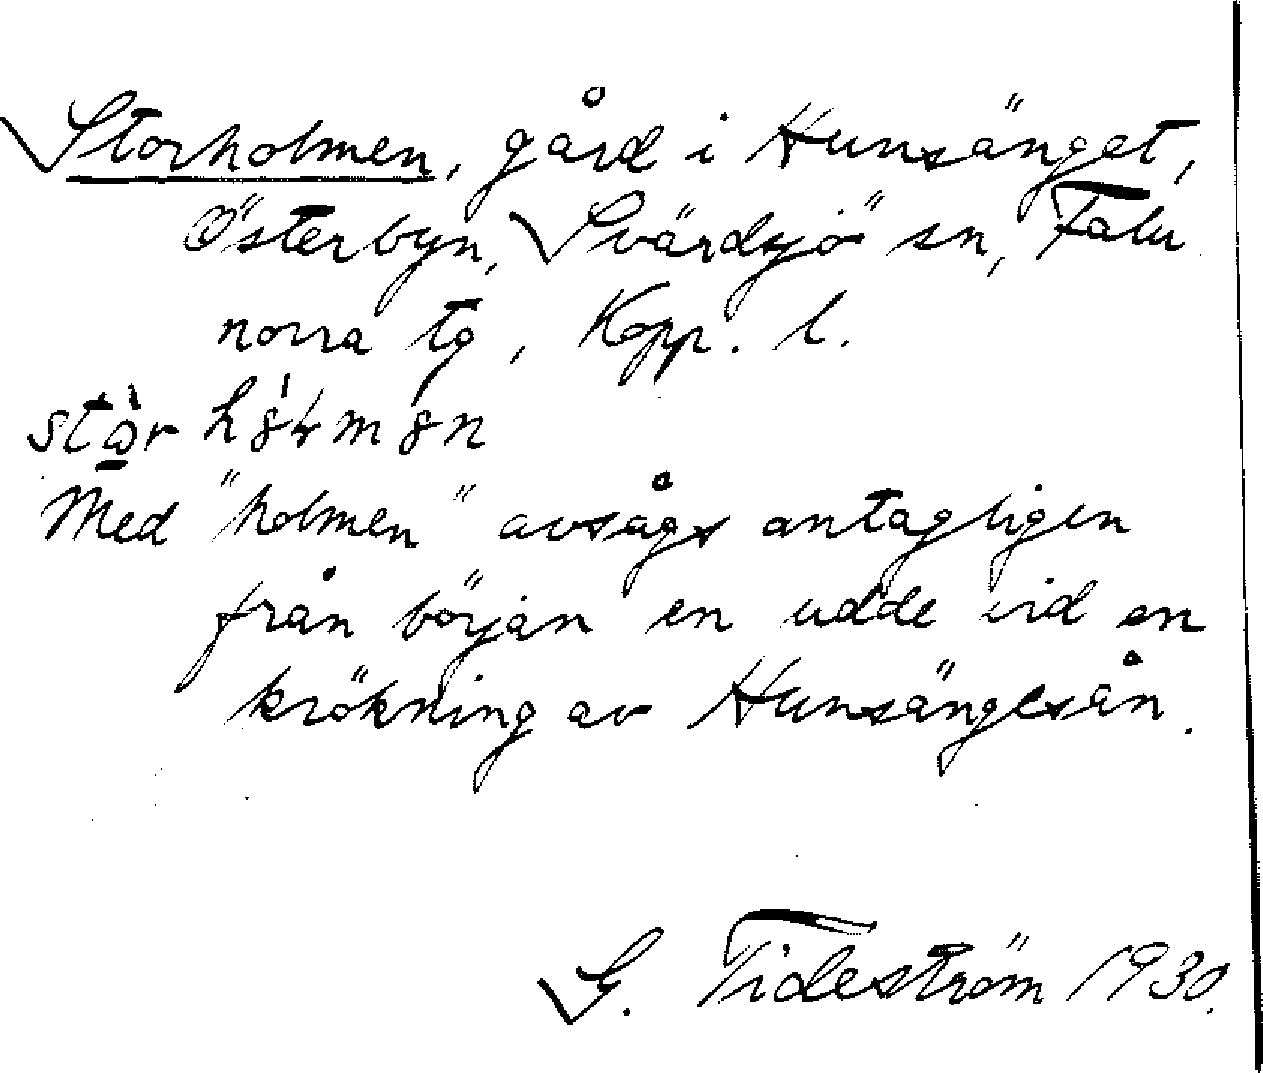 Storholmen, gård i Hunsänget,
Österbyn, Svärdsjö sn, Falu
norra tg, Kopp. l.
Med "holmen" avsågs antagligen
från början en udde vid en
krökning av Hunsängesån.
G. Tideström 1930.